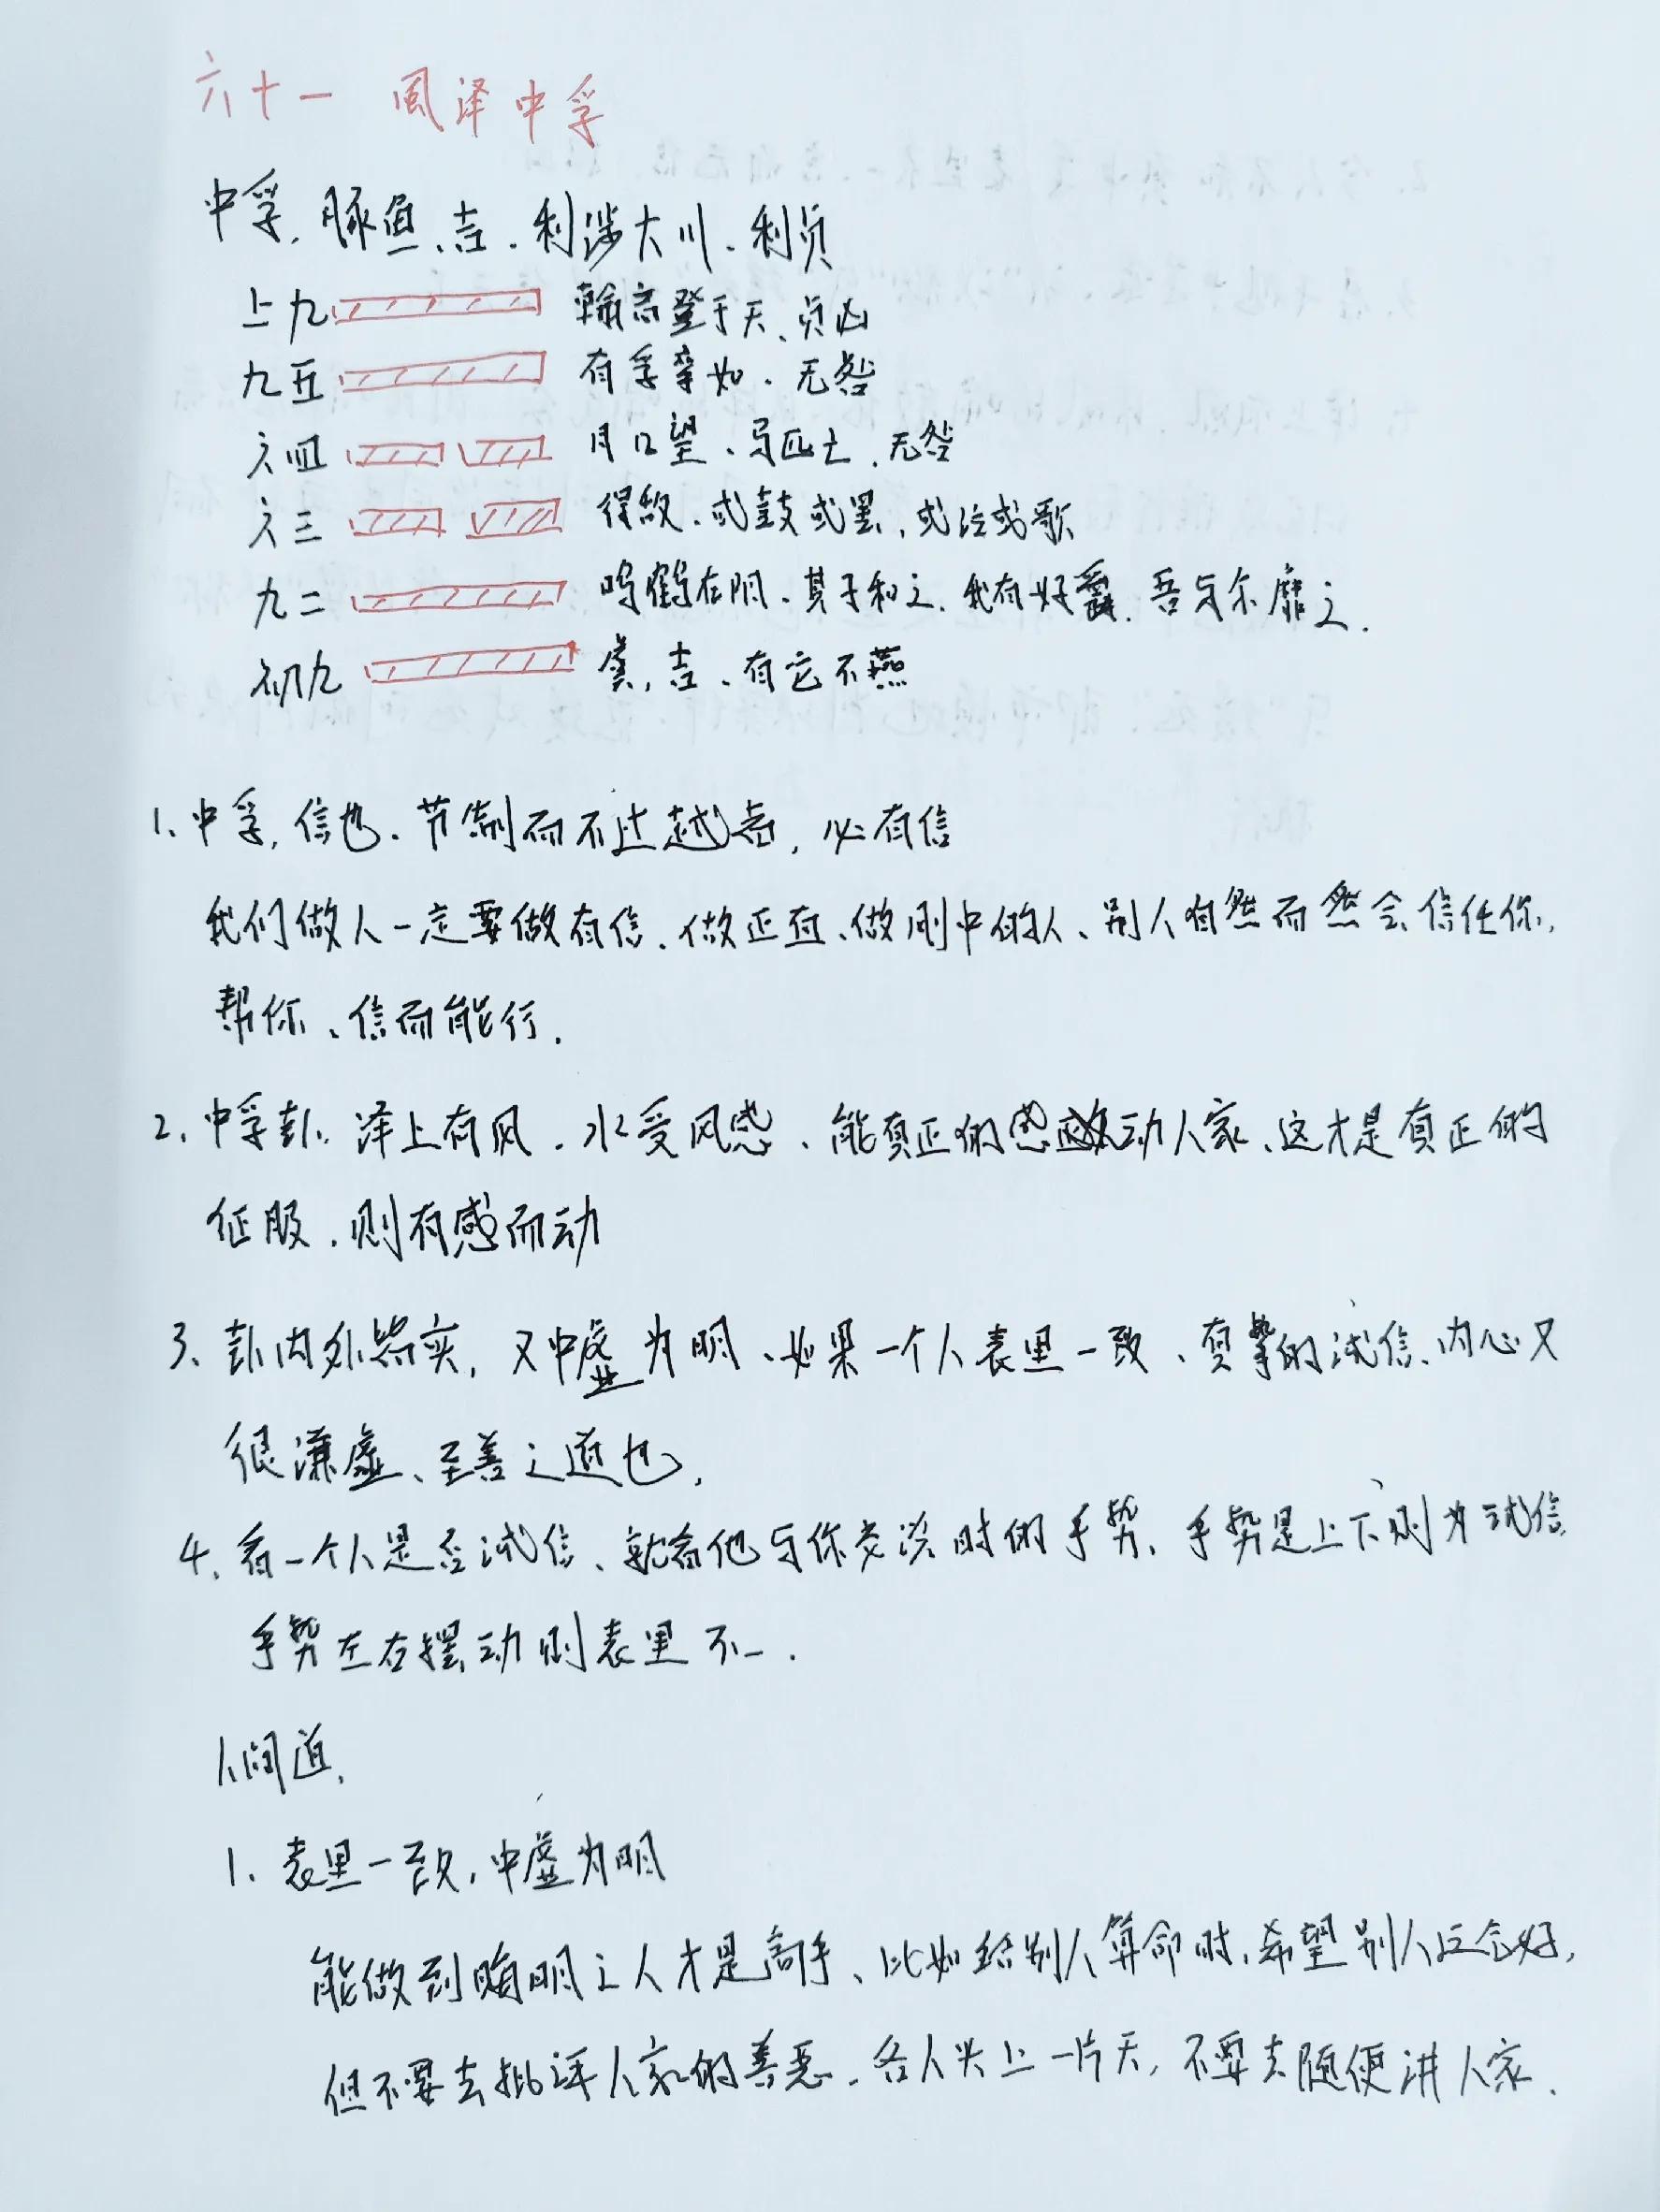 六十一 風泽中孚
中孚.豚鱼、吉.利涉大川、利贞
上九 翰音登于天、贞凶
九五 有孚挛如.无咎
六四 月几望、马匹亡.无咎
六三 得敌.或鼓或罢,或泣或歌
九二 鸣鹤在阴、其子和之.我有好爵.吾与尔靡之.
初九 虞,吉、有它不燕
1、中孚,信也.节制而不过越者,必有信
我们做人一定要做有信.做正直、做刚中的人、别人自然而然会信任你,
帮你、信而能行.
2、中孚卦.泽上有风.水受风感、能真正的感动人家、这才是真正的
征服.则有感而动
3、卦内外皆实,又中虚为明、如果一个人表里一致、真挚的诚信、内心又
很谦虚、至善之道也.
4、看一个人是否诚信、就看他与你交谈时的手势,手势是上下则为诚信
手势左右摆动则表里不一.
人间道,
1、表里一致,中虚为明
能做到晦明之人才是高手、比如给别人算命时,希望别人应念好,
但不要去批评人家的善恶.各人头上一片天,不要去随便讲人家.